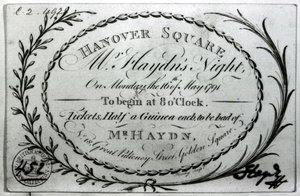 HANOVER SQUARE
Mr. Haydn's Night,
On Monday, the 16th of May 1791
To begin at 8 o'Clock.
Tickets, Half a Guinea each, to be had of
Mr. HAYDN,
Great Pulteney Street Golden Square.